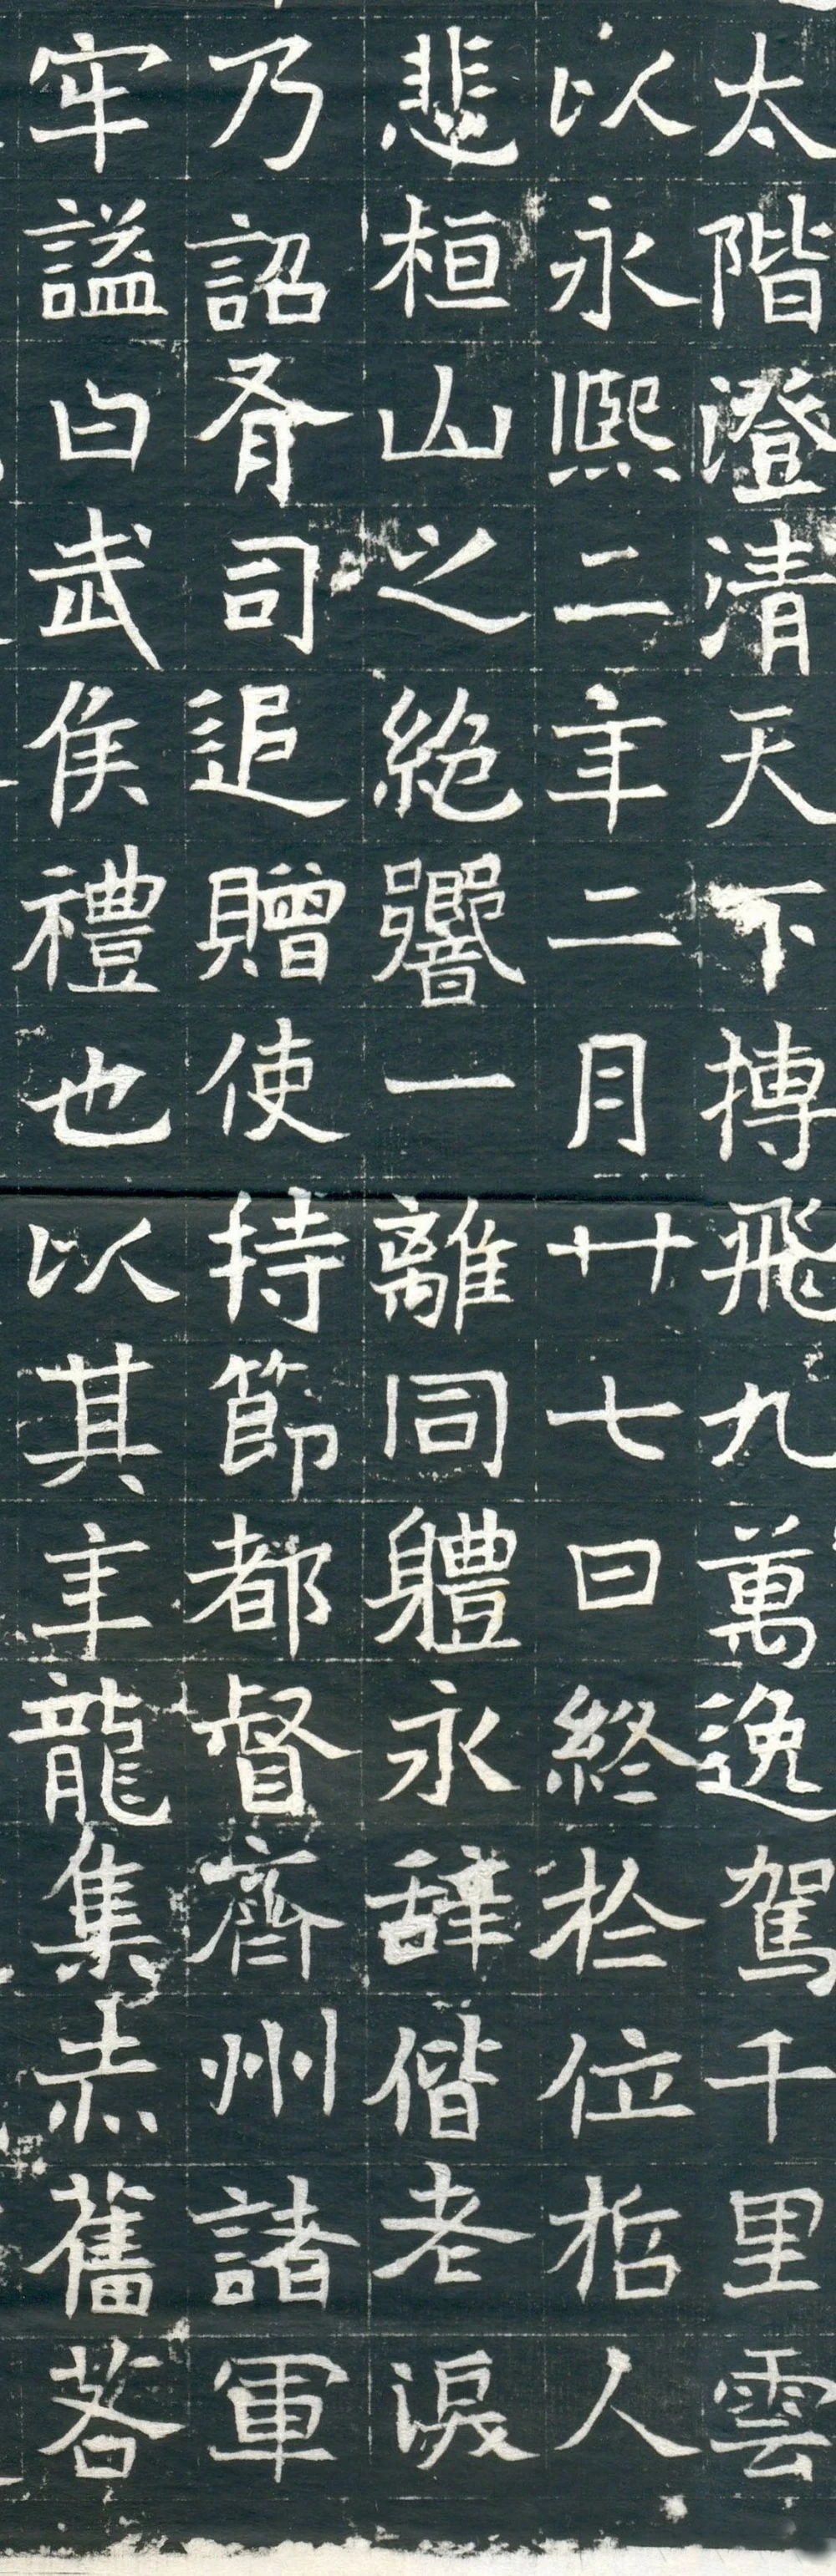 太階澄清天下搏飛九萬逸駕千里雲
以永熙二年二月廿七日終於位哲人
悲桓山之絕響一離同體永辞偕老淚
乃詔有司追贈使持節都督齊州諸軍
牢謚曰武侯禮也以其年龍集赤奮若